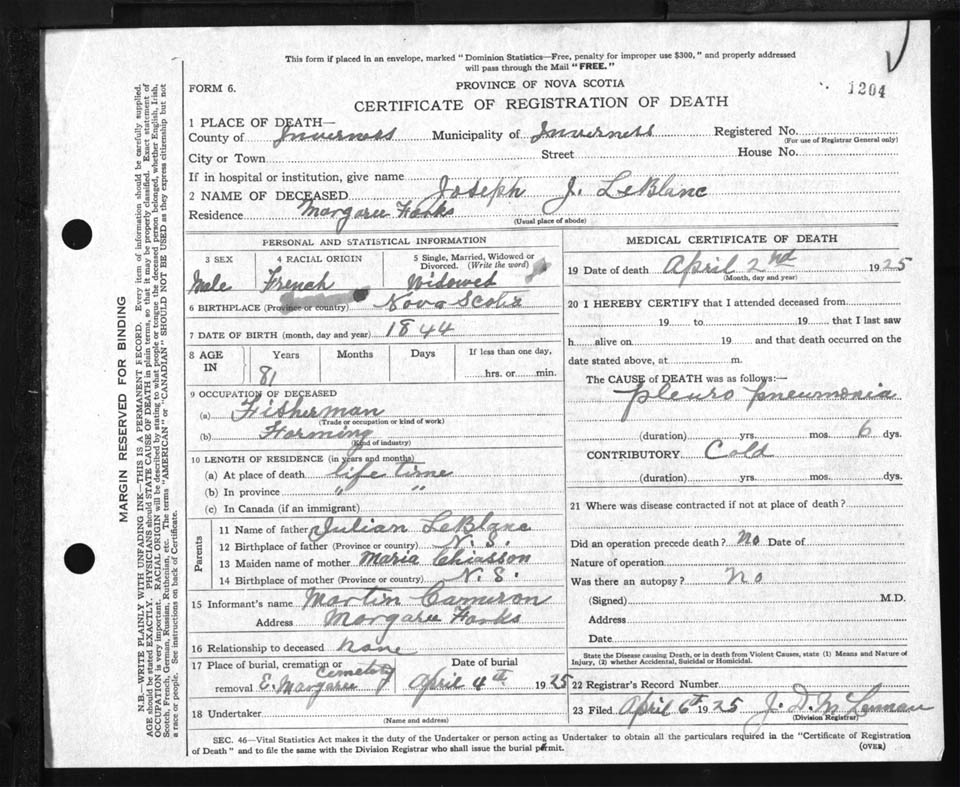 This form if placed in an envelope, marked "Dominion Statistics—Free, penalty for improper use $300," and properly addressed
will pass through the Mail "FREE."
FORM 6.
PROVINCE OF NOVA SCOTIA
1204
CERTIFICATE OF REGISTRATION OF DEATH
1 PLACE OF DEATH—
County of Inverness Municipality of Inverness Registered No.
(For use of Registrar General only)
City or Town Street House No.
If in hospital or institution, give name
2 NAME OF DECEASED Joseph J. LeBlanc
Residence Margaree Forks
(Usual place of abode)
PERSONAL AND STATISTICAL INFORMATION
3 SEX 4 RACIAL ORIGIN 5 Single, Married, Widowed or Divorced. (Write the word)
Male French Widowed
6 BIRTHPLACE (Province or country) Nova Scotia
7 DATE OF BIRTH (month, day and year) 1844
8 AGE IN Years Months Days If less than one day,
81 hrs. or min.
9 OCCUPATION OF DECEASED
(a) Fisherman
(Trade or occupation or kind of work)
(b) Farming
(Kind of industry)
10 LENGTH OF RESIDENCE (in years and months)
(a) At place of death life time
(b) In province " "
(c) In Canada (if an immigrant)
Parents
11 Name of father Julian LeBlanc
12 Birthplace of father (Province or country) N. S.
13 Maiden name of mother Maria Chiasson
14 Birthplace of mother (Province or country) N. S.
15 Informant's name Martin Cameron
Address Margaree Forks
16 Relationship to deceased none
17 Place of burial, cremation or removal E. Margaree Cemetery
Date of burial
April 4th 1925
18 Undertaker
(Name and address)
MEDICAL CERTIFICATE OF DEATH
19 Date of death April 2nd 1925
(Month, day and year)
20 I HEREBY CERTIFY that I attended deceased from
19 to 19 that I last saw
h alive on 19 and that death occurred on the
date stated above, at m.
The CAUSE of DEATH was as follows:—
pleuro pneumonia
(duration) yrs. mos. 6 dys.
CONTRIBUTORY Cold
(duration) yrs. mos. dys.
21 Where was disease contracted if not at place of death?
Did an operation precede death? No Date of
Nature of operation
Was there an autopsy? No
(Signed) M.D.
Address
Date
State the Disease causing Death, or in death from Violent Causes, state (1) Means and Nature of
Injury, (2) whether Accidental, Suicidal or Homicidal.
22 Registrar's Record Number
23 Filed April 6th 1925 J. D.
(Division Registrar)
SEC. 46—Vital Statistics Act makes it the duty of the Undertaker or person acting as Undertaker to obtain all the particulars required in the "Certificate of Registration
of Death" and to file the same with the Division Registrar who shall issue the burial permit.
(OVER)
MARGIN RESERVED FOR BINDING
N.B.—WRITE PLAINLY WITH UNFADING INK—THIS IS A PERMANENT RECORD. Every item of information should be carefully supplied.
AGE should be stated EXACTLY. PHYSICIANS should STATE CAUSE OF DEATH in plain terms, so that it may be properly classified. Exact statement of
OCCUPATION is very important. RACIAL ORIGIN will be described by stating to what people or tongue the deceased person belonged, whether English, Irish,
Scotch, French, German, Russian, Ruthenian, etc. The terms "AMERICAN" or "CANADIAN" SHOULD NOT BE USED as they express citizenship but not
a race or people. See instructions on back of Certificate.